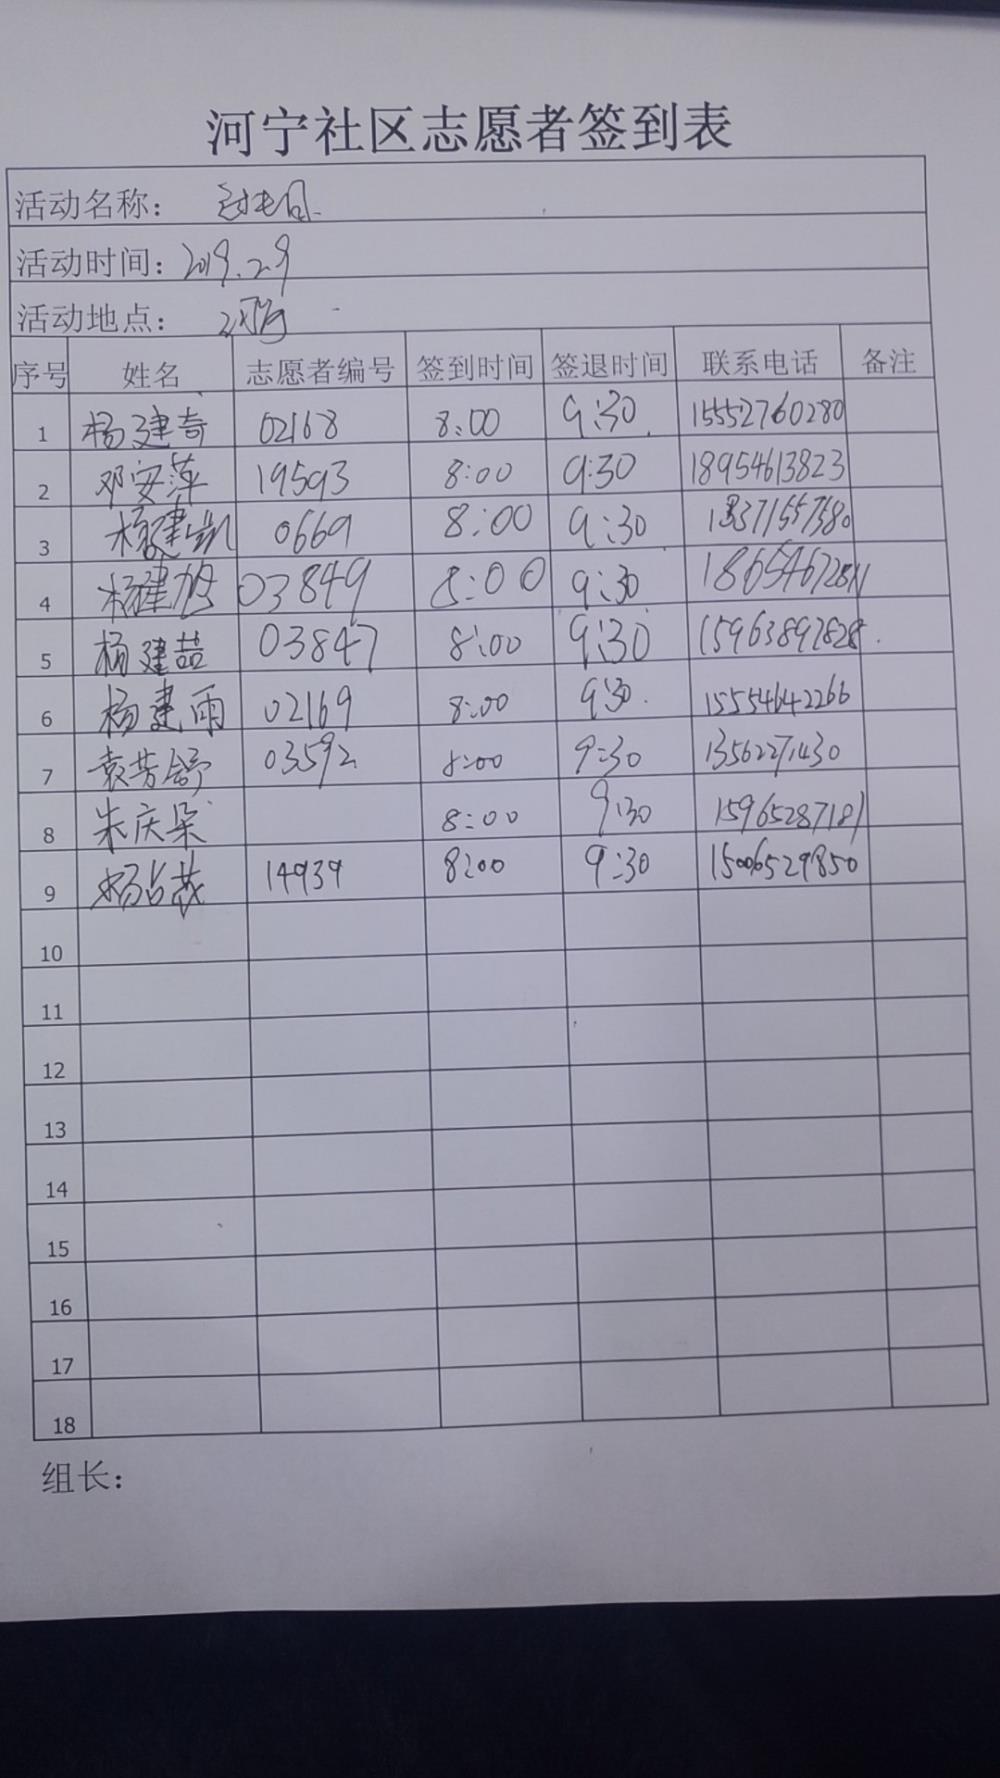 河宁社区志愿者签到表
活动名称：
活动时间：2019.2.9
活动地点：
序号 姓名 志愿者编号 签到时间 签退时间 联系电话 备注
1 杨建奇 02168 8:00 9:30 15552760280
2 邓安萍 19593 8:00 9:30 18954613823
3 杨建凯 0669 8:00 9:30
4 杨建旭 03849 8:00 9:30
5 杨建喆 03847 8:00 9:30 15963897828
6 杨建雨 02169 8:00 9:30 15554642266
7 袁芳舒 03592 8:00 9:30 13562271430
8 朱庆朵 8:00 9:30 15965287181
9 杨占茂 14939 8:00 9:30 15006529850
10
11
12
13
14
15
16
17
18
组长：